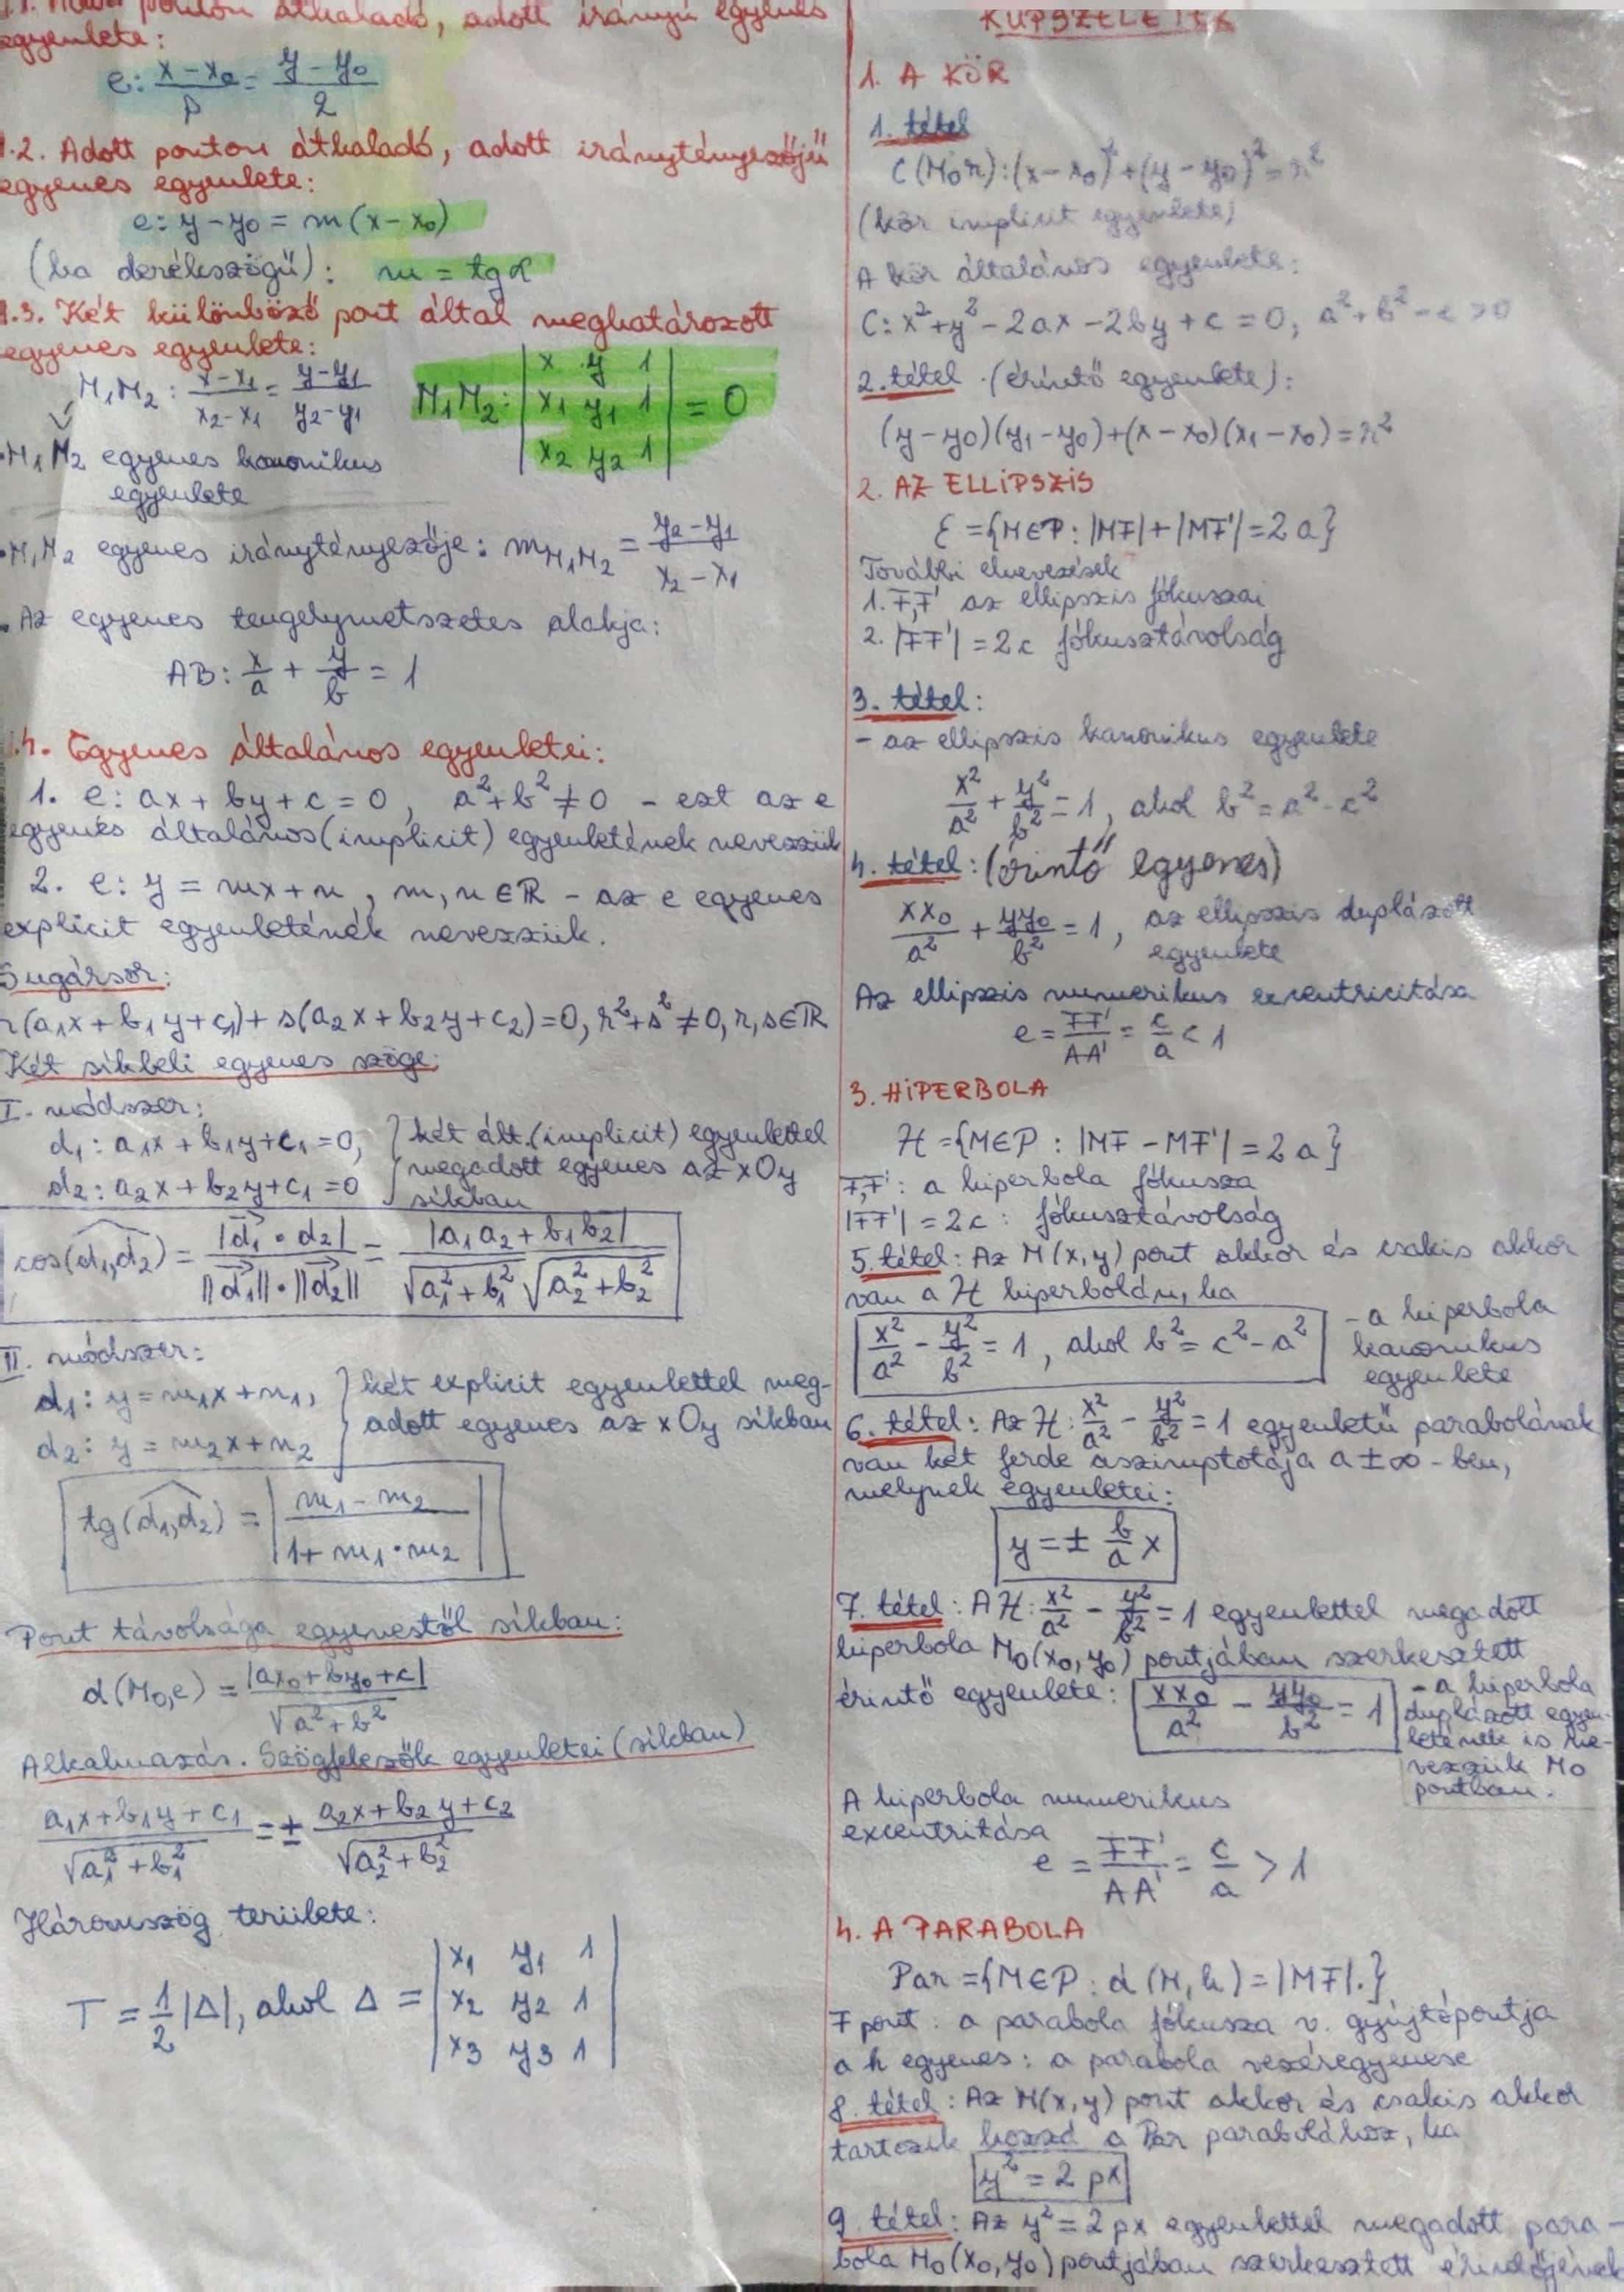 ponton áthaladó, adott irányú egyenes
egyenlete:
e: \frac{x-x_0}{p} = \frac{y-y_0}{q}
1.2. Adott ponton áthaladó, adott iránytényezőjű
egyenes egyenlete:
e: y-y_0 = m(x-x_0)
(ha derékszögű): m = tg α
1.3. Két különböző pont által meghatározott
egyenes egyenlete:
M_1M_2: \frac{x-x_1}{x_2-x_1} = \frac{y-y_1}{y_2-y_1}
M_1M_2: \begin{vmatrix} x & y & 1 \\ x_1 & y_1 & 1 \\ x_2 & y_2 & 1 \end{vmatrix} = 0
• M_1M_2 egyenes kanonikus
egyenlete
• M_1M_2 egyenes iránytényezője: m_{M_1M_2} = \frac{y_2-y_1}{x_2-x_1}
• Az egyenes tengelymetszetes alakja:
AB: \frac{x}{a} + \frac{y}{b} = 1
1.4. Egyenes általános egyenletei:
1. e: ax + by + c = 0, a^2+b^2 ≠ 0 - ezt az e
egyenes általános (implicit) egyenletének nevezzük
2. e: y = mx+n, m,n ∈ ℝ - az e egyenes
explicit egyenletének nevezzük.
Sugársor:
r(a_1x+b_1y+c_1)+s(a_2x+b_2y+c_2)=0, r^2+s^2 ≠ 0, r,s∈ℝ
Két síkbeli egyenes szöge:
I. módszer:
d_1: a_1x+b_1y+c_1=0,
d_2: a_2x+b_2y+c_1=0
két ált. (implicit) egyenlettel
megadott egyenes az xOy
síkban
cos(d_1,d_2) = \frac{|\vec{d_1} • d_2|}{||\vec{d_1}|| • ||\vec{d_2}||} = \frac{|a_1a_2+b_1b_2|}{\sqrt{a_1^2+b_1^2}\sqrt{a_2^2+b_2^2}}
II. módszer:
d_1: y=m_1x+n_1,
d_2: y=m_2x+n_2
két explicit egyenlettel meg-
adott egyenes az xOy síkban
tg(d_1,d_2) = \left|\frac{m_1-m_2}{1+m_1•m_2}\right|
Pont távolsága egyenestől síkban:
d(M_0,e) = \frac{|ax_0+by_0+c|}{\sqrt{a^2+b^2}}
Alkalmazás. Szögfelezők egyenletei (síkban)
\frac{a_1x+b_1y+c_1}{\sqrt{a_1^2+b_1^2}} = ± \frac{a_2x+b_2y+c_2}{\sqrt{a_2^2+b_2^2}}
Háromszög területe:
T = \frac{1}{2}|Δ|, ahol Δ = \begin{vmatrix} x_1 & y_1 & 1 \\ x_2 & y_2 & 1 \\ x_3 & y_3 & 1 \end{vmatrix}
KÚPSZELETEK
1. A KÖR
1. tétel
C(M_0r): (x-x_0)^2+(y-y_0)^2=r^2
(kör implicit egyenlete)
A kör általános egyenlete:
C: x^2+y^2-2ax-2by+c=0, a^2+b^2-c>0
2. tétel (érintő egyenlete):
(y-y_0)(y_1-y_0)+(x-x_0)(x_1-x_0)=r^2
2. AZ ELLIPSZIS
ℰ={M∈P: |MF|+|MF'|=2a}
További elnevezések
1. F,F' az ellipszis fókuszai
2. |FF'|=2c fókusztávolság
3. tétel:
- az ellipszis kanonikus egyenlete
\frac{x^2}{a^2}+\frac{y^2}{b^2}=1, ahol b^2=a^2-c^2
4. tétel: (érintő egyenes)
\frac{xx_0}{a^2}+\frac{yy_0}{b^2}=1, az ellipszis duplázott
egyenlete
Az ellipszis numerikus excentricitása
e=\frac{FF'}{AA'}=\frac{c}{a}<1
3. HIPERBOLA
ℋ={M∈P: |MF-MF'|=2a}
F,F': a hiperbola fókusza
|FF'|=2c: fókusztávolság
5. tétel: Az M(x,y) pont akkor és csakis akkor
van a ℋ hiperbolán, ha
\frac{x^2}{a^2}-\frac{y^2}{b^2}=1, ahol b^2=c^2-a^2
- a hiperbola
kanonikus
egyenlete
6. tétel: Az ℋ: \frac{x^2}{a^2}-\frac{y^2}{b^2}=1 egyenletű parabolának
van két ferde aszimptotája a ±∞-ben,
melynek egyenletei:
y=±\frac{b}{a}x
7. tétel: A ℋ: \frac{x^2}{a^2}-\frac{y^2}{b^2}=1 egyenlettel megadott
hiperbola M_0(x_0,y_0) pontjában szerkesztett
érintő egyenlete: \frac{xx_0}{a^2}-\frac{yy_0}{b^2}=1
- a hiperbola
duplázott egyen-
letének is ne-
vezzük M_0
pontban.
A hiperbola numerikus
excentritása
e=\frac{FF'}{AA'}=\frac{c}{a}>1
4. A PARABOLA
Par={M∈P: d(M,h)=|MF|.}
F pont: a parabola fókusza v. gyújtópontja
a h egyenes: a parabola vezéregyenese
8. tétel: Az M(x,y) pont akkor és csakis akkor
tartozik hozzá a Par parabolához, ha
y^2=2px
9. tétel: Az y^2=2px egyenlettel megadott para-
bola M_0(x_0,y_0) pontjában szerkesztett érintőjének